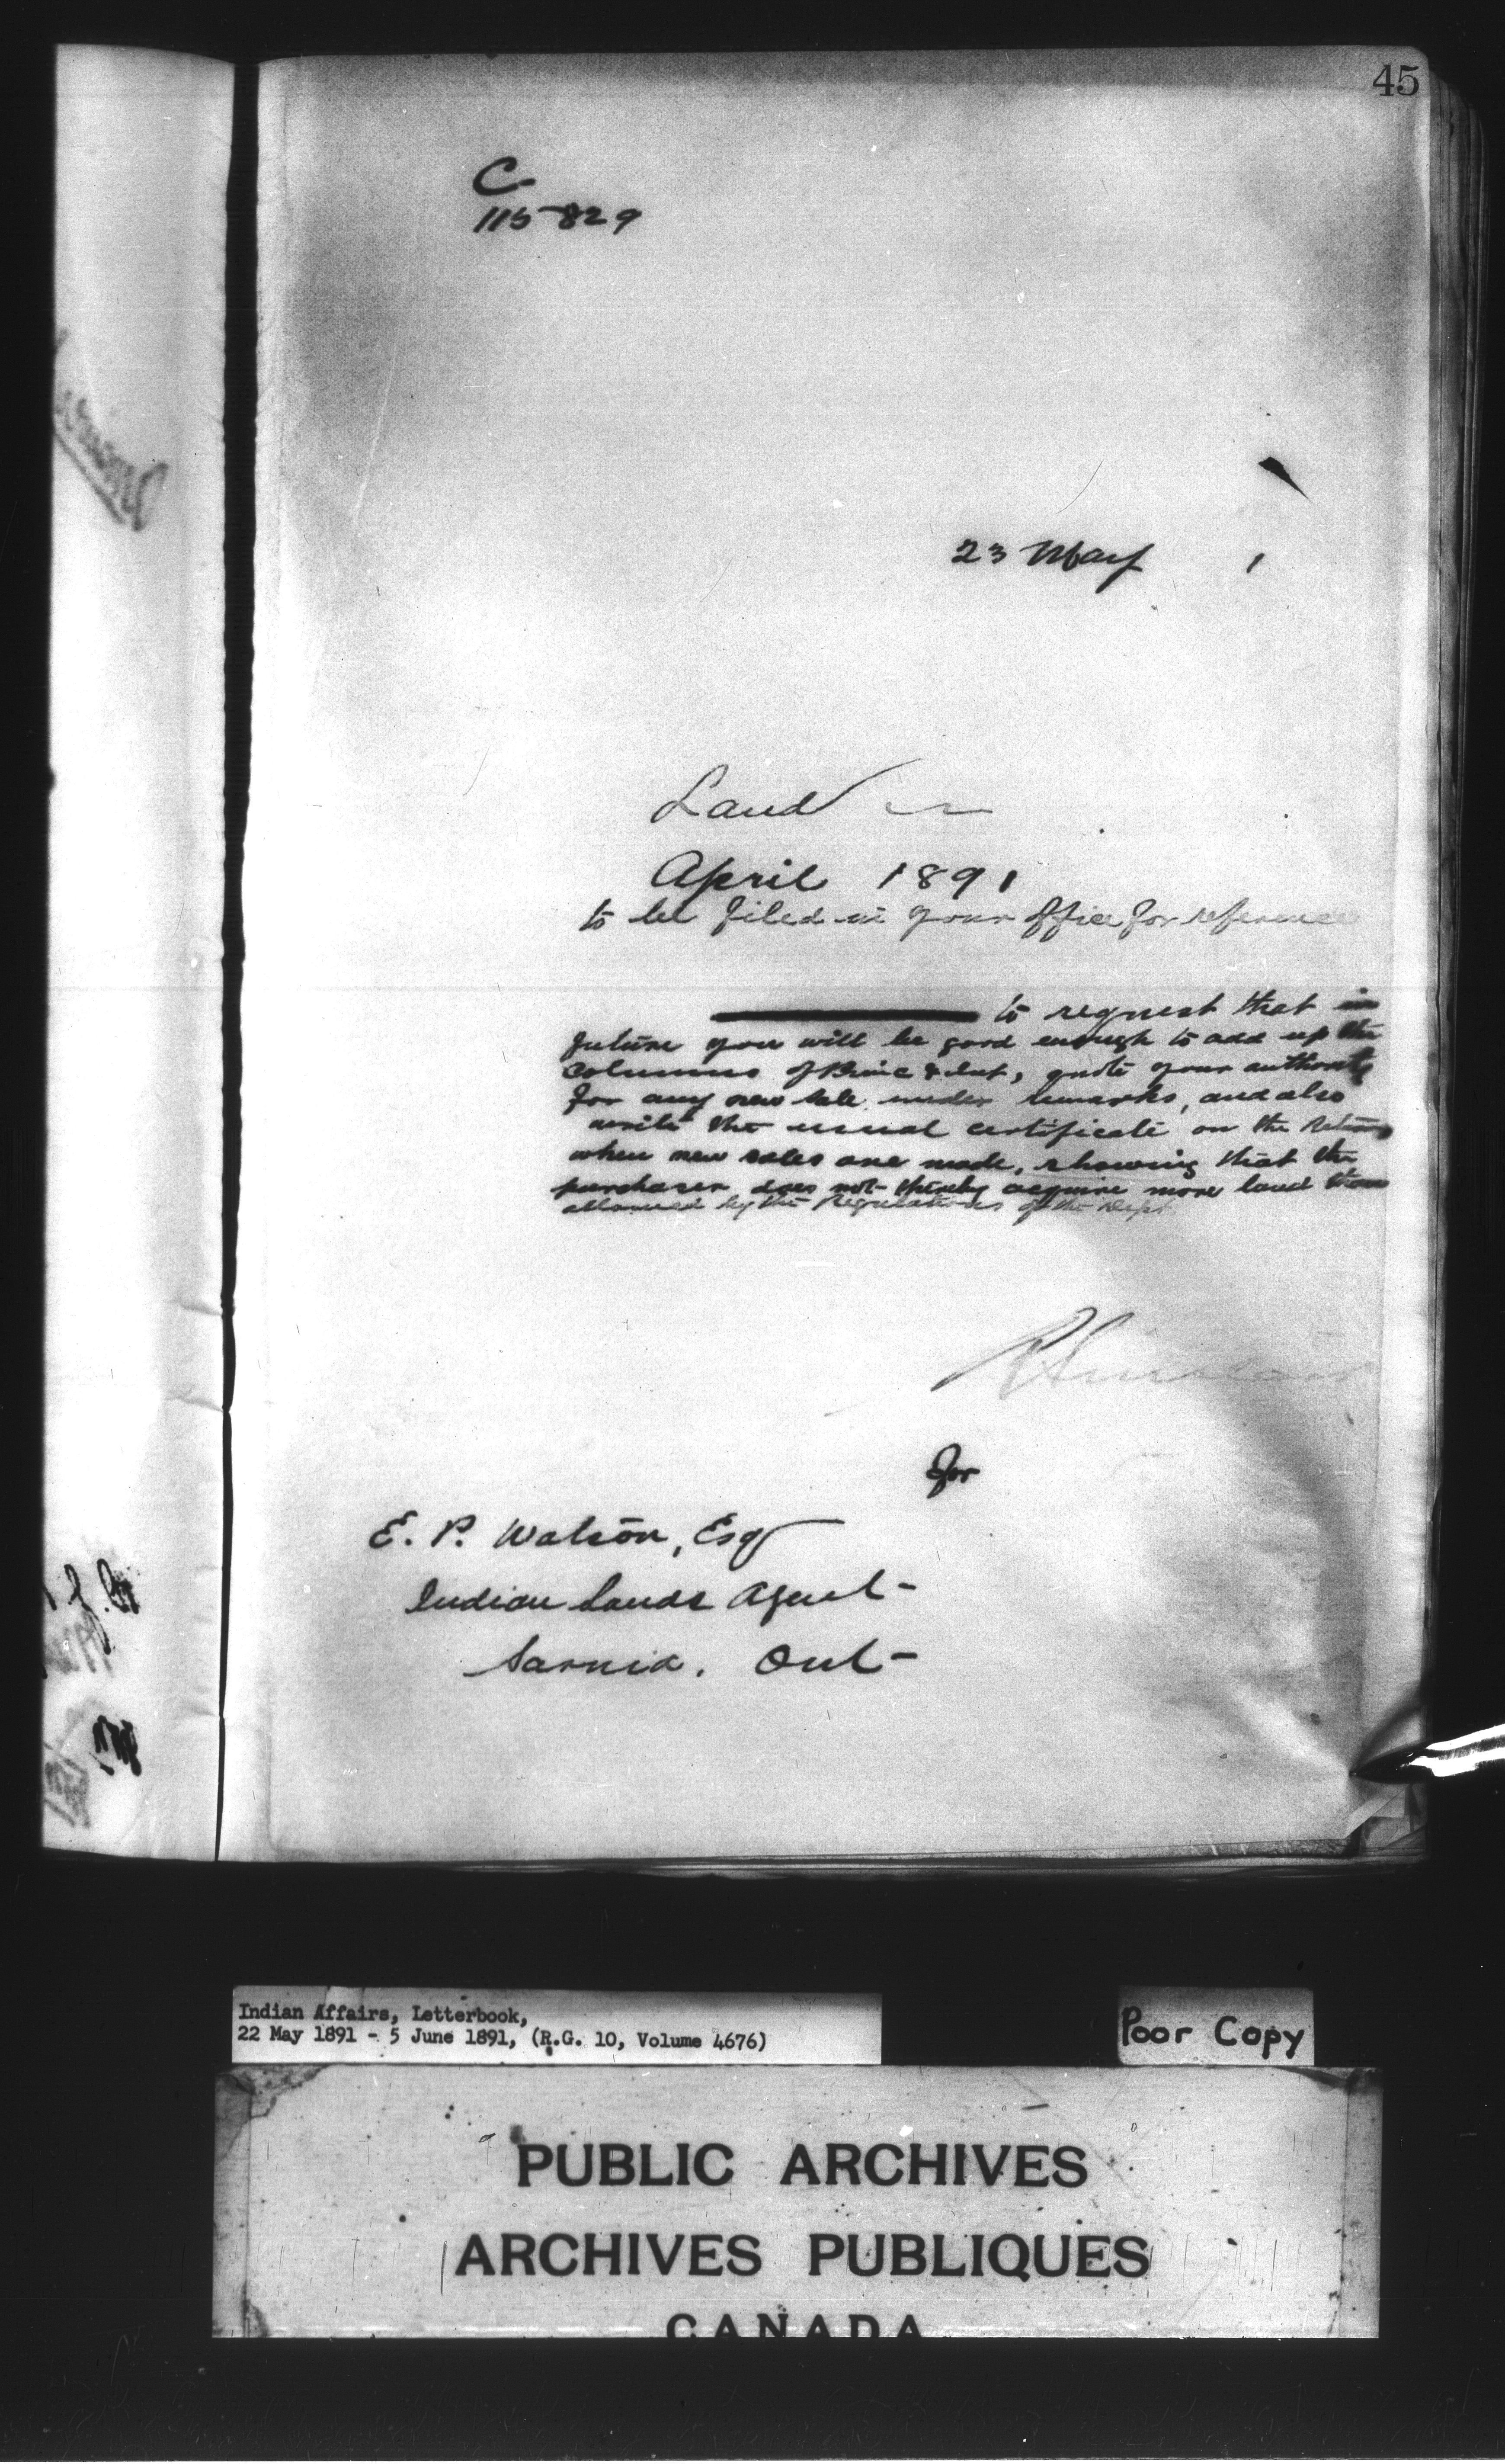 45
C.
115829
23 May 1
Land
April 1891
to be filed in your office for reference
to request that in
future you will be good enough to add up the
columns of Princ & Int, quote your authority
for any new sale under remarks, and also
write the usual certificate on the Return
when new sales are made, showing that the
purchaser does not thereby acquire more land than
allowed by the Regulations of the Dept
for
E. P. Watson, Esq
Indian Lands Agent-
Sarnia. Ont-
Indian Affairs, Letterbook,
22 May 1891 - 5 June 1891, (R.G. 10, Volume 4676)
Poor Copy
PUBLIC ARCHIVES
ARCHIVES PUBLIQUES
CANADA